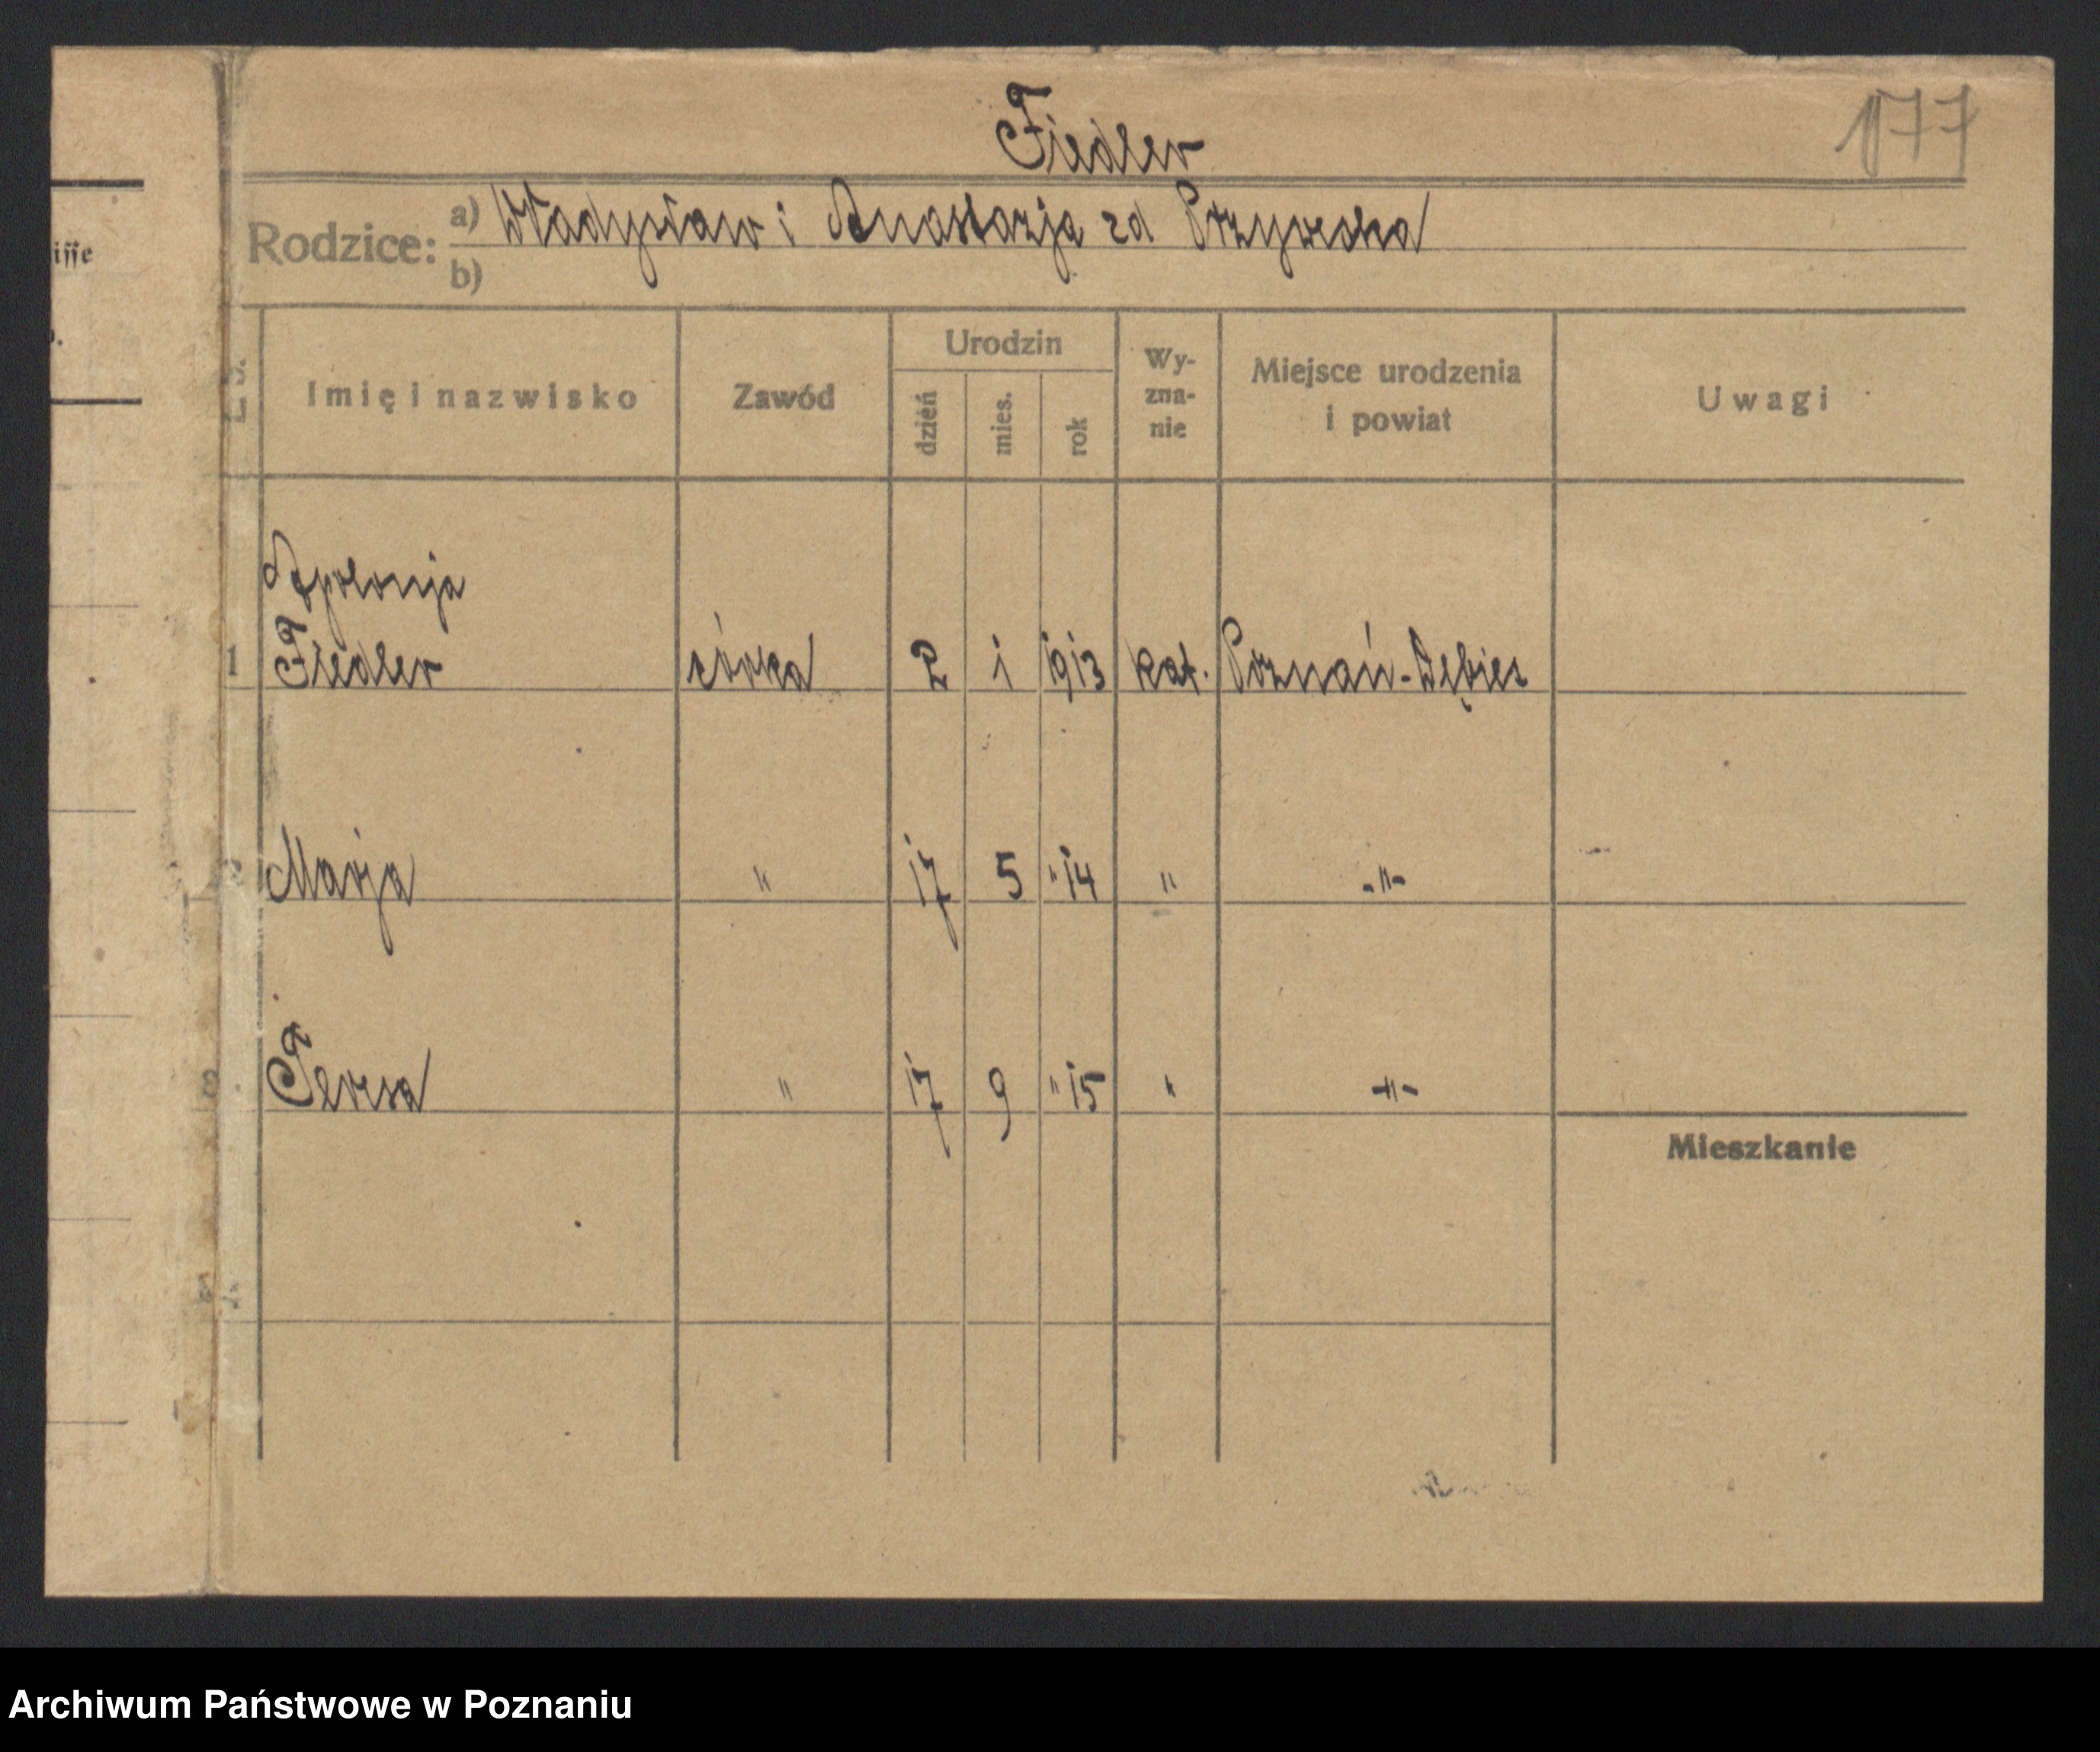 Fiedler
177
Rodzice: a) Władysław i Anastazja zd
b)
iffe
L. p.
Imię i nazwisko
Zawód
Urodzin
dzień
mies.
rok
Wy-
zna-
nie
Miejsce urodzenia
i powiat
Uwagi
Apolonja
1 Fiedler córka 2 1 1913 kat. Poznań-Dębiec
2 Marja " 17 5 "14 " -"-
3 Teresa " 17 9 "15 " -"-
Mieszkanie
Archiwum Państwowe w Poznaniu